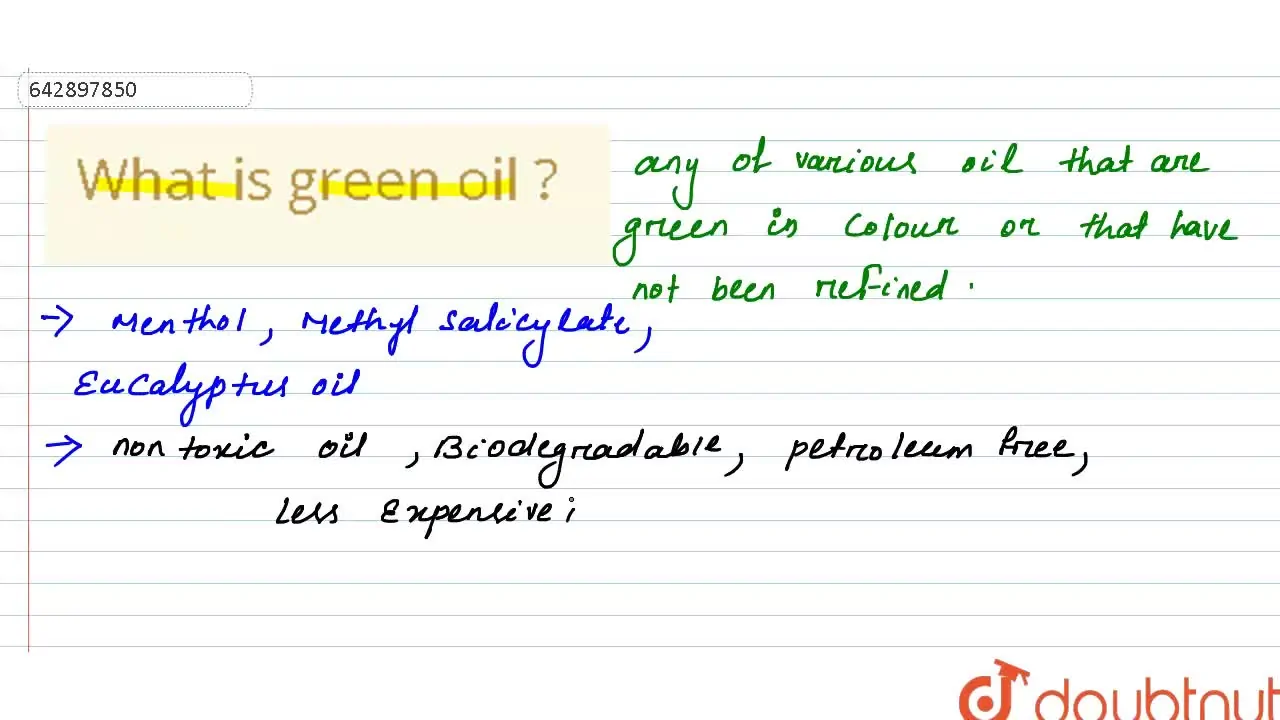 642897850
What is green oil ?
any of various oil that are
green in colour or that have
not been refined .
→ Menthol, Methyl salicylate,
Eucalyptus oil
→ non toxic oil , Biodegradable, petroleum free,
less Expensive i
doubtnut